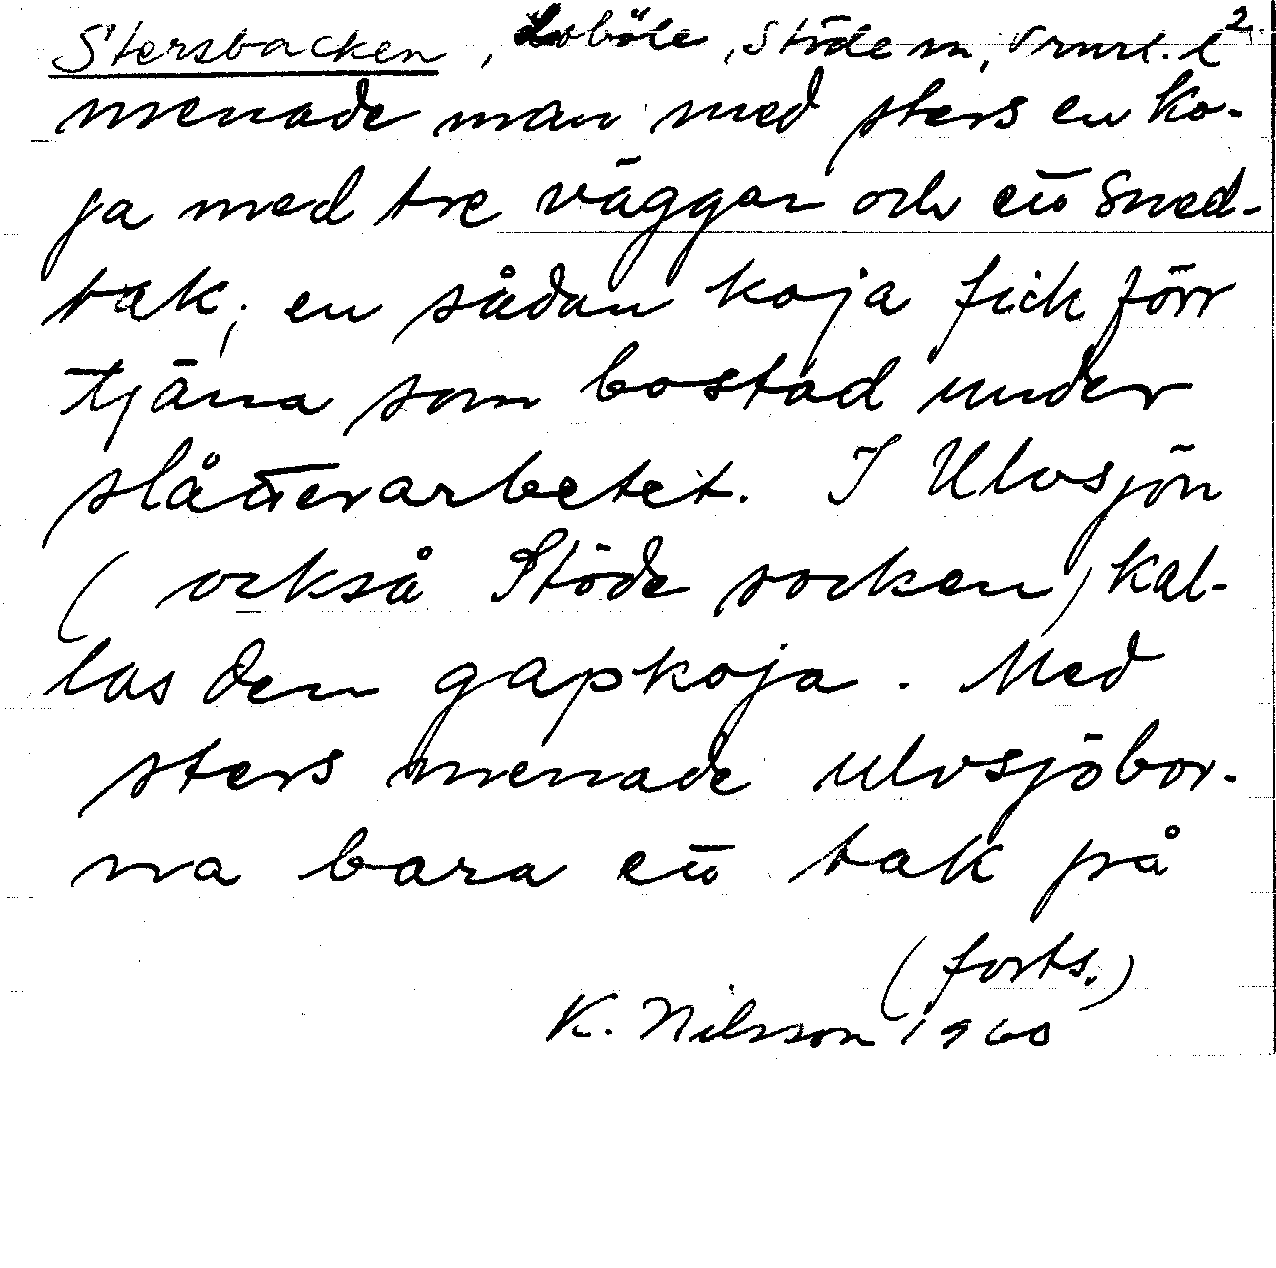 Stersbacken, Loböle, Stöde sn, Vrml. 2
menade man med sters en ko-
ja med tre väggar och ett sned-
tak; en sådan koja fick förr
tjäna som bostad under
slåtterarbetet. I Ulvsjön
(också Stöde socken) kal-
las den gapkoja. Med
sters menade ulvsjöbor-
na bara ett tak på
(forts.)
K. Nilsson 1960